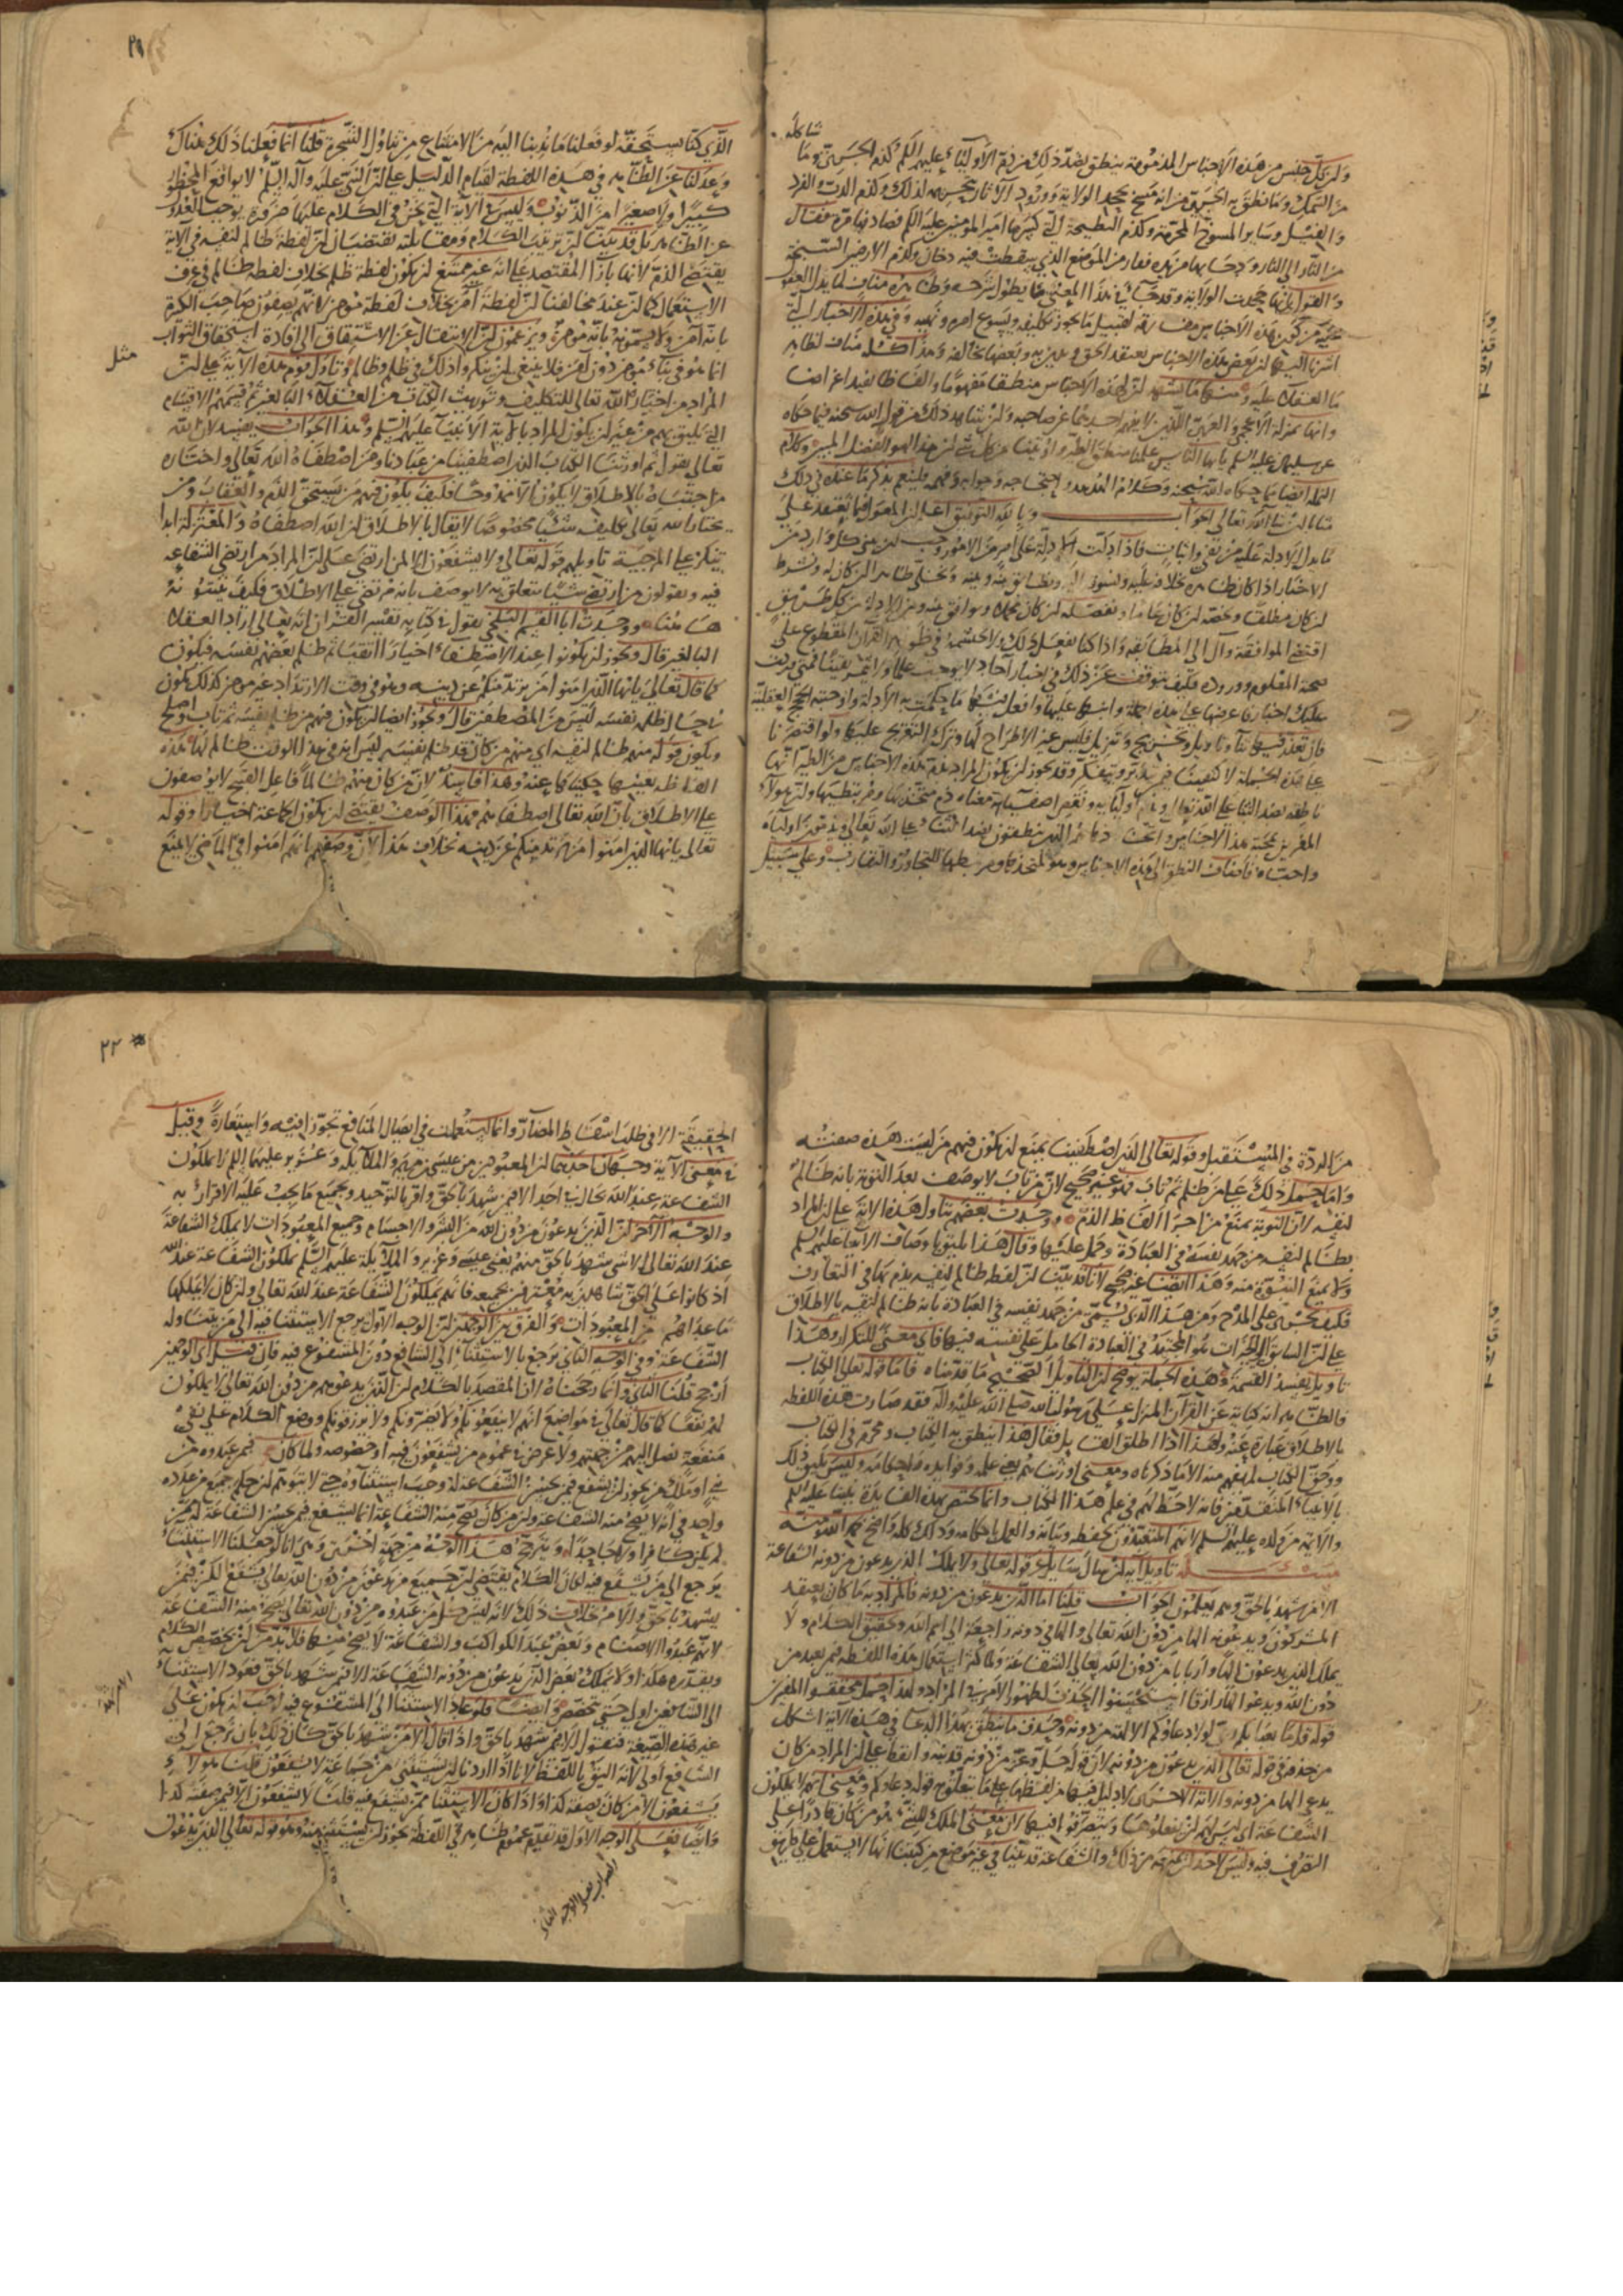 شاكله
وان كل جنس من هذه الاجناس المذمومة ينطق بضد ذلك من ذم الاولياء عليهم السلم كذم الجري وما
من السمك وما نطق به الجري من انه مسخ بجحد الولاية وورود الآثار بتحريمه لذلك وكذم الدب والقرد
والفيل وساير المسوخ المحرمة وكذم البطيخة التي كسرها امير المومنين عليه السلم فصادفها مرة فقال
من النار الى النار ودحا بها من يده ففار من الموضع الذي سقطت فيه دخان وكذم الارضين السبخة
والقول بانها جحدت الولاية وقد جاء في هذا المعنى ما يطول شرحه وظاهره مناف لما يدل العقول
عليه من كون هذه الاجناس مفارقة لقبيل ما يجوز تكليفه ويسوغ امره ونهيه وفي هذه الاخبار التي
اشرنا اليها ان بعض هذه الاجناس يعتقد الحق ويدين به وبعضها يخالفه وهذا كله مناف لظاهر
ما العقلاء عليه ومنها ما يشهد ان لهذه الاجناس منطقا مفهوما والفاظا تفيد اغراضا
وانها بمنزلة الاعجمي والعربي اللذين لا يفهم احدهما عن صاحبه وان شاهد ذلك من قول الله سبحنه فيما حكاه
عن سليمان عليه السلم يا ايها الناس علمنا منطق الطير واوتينا من كل شئ ان هذا لهو الفضل المبين وكلام
النملة ايضا مما حكاه الله سبحنه وكلام الهدهد واحتجاجه وجوابه وفهمه فلينعم بذكر ما عنده في ذلك
مثابا ان شا الله تعالى الجواب وبالله التوفيق اعلم ان المعول فيما يعتقد على
ما يدل الادلة عليه من نفي واثبات فاذا دلت الادلة على امر من الامور وجب ان نبني كل وارد من
الاخبار اذا كان ظاهره بخلافه عليه ونسوقه اليه ونطابق بينه وبينه ونخلي ظاهرا ان كان له ونشرط
ان كان مطلقا ونخصه ان كان عاما ونفصله ان كان مجملا ونوافق بينه وبين الادلة من كل طريق
اقتضى الموافقة وآل الى المطابقة واذا كنا نفعل ذلك ولا نحتشمه في ظواهر القرآن المقطوع على
صحته المعلوم وروده فكيف نتوقف عن ذلك في اخبار آحاد لا توجب علما ولا تثمر يقينا فمتى وردت
عليك اخبار فاعرضها على هذه الجملة وابنها عليها وافعل فيها ما حكمت به الادلة واوجبته الحجج العقلية
فان تعذر فيها بناء وتاويل وتخريج وتنزيل فليس غير الاطراح لها وترك التعريج عليها ولو اقتصرنا
على هذه الجملة لاكتفينا فمن يتدبر ويتفكر وقد يجوز ان يكون المراد بذم هذه الاجناس من الطير انها
ناطقة بضد الثنا على الله تعالى وبذم اوليايه ونقص اصفيايه معناه ذم متخذيها ومرتبطيها وان هولاء
المغرين بمحبة هذا الاجناس واتخاذها هم الذين ينطقون بضد الثناء على الله تعالى ويذمون اولياه
واحباه فاضاف النطق الى هذه الاجناس وهو لمتخذها ومرتبطها للتجاور والتقارب وعلى سبيل
٢١
الذي كنا نستحقه لو فعلنا ما ندبنا اليه من الامتناع من تناول الشجرة قلنا انما فعلنا ذلك هناك
وعدلنا عن الظاهر في هذه اللفظة لقيام الدليل على ان النبي عليه وآله السلم لا يواقع المحظور
كبيرا ولا صغيرا من الذنوب وليس في الاية التي نحن في الكلام عليها ضرورة توجب العدول
عن الظاهر بل قد بينا ان ترتيب الكلام ومقابلته تقتضيان ان لفظة ظالم لنفسه في الآية
يقتضى الذم لانها بازا المقتصد على انه غير ممتنع ان يكون لفظة ظلم بخلاف لفظة ظالم في عرف
الاستعمال كما ان عند مخالفنا ان لفظة آمن بخلاف لفظة مومن لانهم يصفون صاحب الكبيرة
بانه آمن ولا يسمونه بانه مومن ويزعمون ان الانتقال عن الاشتقاق الى افادة استحقاق الثواب
انما هو في بناء مومن دون آمن فلا ينبغي ان ينكروا ذلك في ظلم وظالم وتاول قوم هذه الآية على ان
مثل
المراد من اختاره الله تعالى للتكليف وتوريث الكتاب من العقلاء البالغين ثم قسمهم الاقسام
التي تليق بهم من غير ان يكون المراد بالآية الانبيآ عليهم السلم وهذا الجواب يفسد لان الله
تعالى يقول ثم اورثنا الكتاب الذين اصطفينا من عبادنا ومن اصطفاه الله تعالى واختاره
واجتباه بالاطلاق لا يكون الا ممدوحا فكيف يكون فيهم من يستحق الذم والعقاب ومن
يختار الله تعالى تكليفه شيئا مخصوصا لا يقال بالاطلاق ان الله اصطفاه والمعتزلة ابدا
تنكر على المرجية تاويلهم قوله تعالى ولا يشفعون الا لمن ارتضى على ان المراد من ارتضى الشفاعه
فيه ويقولون من ارتضى شيئا يتعلق به لا يوصف بانه مرتضى على الاطلاق فكيف نسوه
هاهنا ووجدت ابا القسم البلخي يقول في كتابه تفسير القرآن انه تعالى اراد العقلاء
البالغين قال ويجوز ان يكونوا عند الاصطفاء اخيارا اتقياء ثم ظلم بعضهم نفسه فيكون
كما قال تعالى يا ايها الذين امنوا من يرتد منكم عن دينه وهو في وقت الارتداد غير مومن كذلك يكون
ناجيا ظالم نفسه ليس من المصطفين قال ويجوز ايضا ان يكون فيهم من ظلم نفسه ثم تاب واصلح
ويكون قوله منهم ظالم لنفسه اي منهم من كان قد ظلم نفسه ليس انه في هذا الوقت ظالم لها هذه
الفاظه بعينها حكيناها عنه وهذا فاسد لان من كان منهم ظالما فاعل القبيح لا يوصفون
على الاطلاق بان الله تعالى اصطفاهم فهذا الوصف يقتضى ان يكون الجماعة اخيارا وقوله
تعالى يا ايها الذين امنوا من يرتد منكم عن دينه بخلاف هذا لان وصفهم بانهم امنوا في الماضي لا يمنع
من الردة في المستقبل وقوله تعالى الذين اصطفينا يمنع ان يكون فيهم من ليست هذه صفته
واما حمل ذلك على من ظلم ثم تاب فهو غير صحيح لان من تاب لا يوصف بعد التوبة بانه ظالم
لنفسه لان التوبة يمنع من اجراء الفاظ الذم ووجدت بعضهم يتاول هذه الاية على ان المراد
بظالم لنفسه من جهد نفسه في العبادة وحمل عليها وقال هذا يليق باوصاف الانبيا عليهم السلم
ولا يمنع التسويغ منه وهذا ايضا غير صحيح لانا قد بينا ان لفظة ظالم لنفسه يذم بها في التعارف
فكيف تجرى على المدح ومن هذا الذي يسمي من جهد نفسه في العبادة بانه ظالم لنفسه بالاطلاق
على ان السابق بالخيرات هو المجتهد في العبادة الحامل على نفسه فيها فاي معنى للتكرار وهذا
تاويل يفسد القسمة وهذه الجملة يوضح ان التاويل الصحيح ما قدمناه فاما قوله تعالى الكتاب
فالظاهر انه كناية عن القرآن المنزل على رسول الله صلى الله عليه وآله فقد صارت هذه اللفظه
بالاطلاق عبارة عنه ولهذا اذا اطلق القايل فقال هذا ينطق به الكتاب ومحرم في الكتاب
ووحق الكتاب لم يفهم منه الا ما ذكرناه ومعنى اورثناهم يعني علمه وفوايده واحكامه وليس يليق ذلك
بالانبياء المتقدمين فانه لا حظ لهم في علم هذا الكتاب وانما تختص بهذه الفايدة نبينا عليه السلم
والايمة من ولده عليهم السلم لانهم المتعبدون بحفظه وبيانه والعمل باحكامه وذلك كله واضح بحمد الله ومنه
مسئلة تاويل آية ان سال سايل عن قوله تعالى ولا يملك الذين يدعون من دونه الشفاعة
الا من شهد بالحق وهم يعلمون الجواب قلنا اما الذين يدعون من دونه فالمراد به ما كان يعبد
المشركون ويدعونه الها من دون الله تعالى والها في دونه راجعة الى اسم الله وتحقيق الكلام ولا
يملك الذين يدعون الها واربابا من دون الله تعالى الشفاعة ولما كثر استعمال هذه اللفظه فيمن يعبد من
دون الله ويدعوا الها رازقا استحسنوا الحذف لظهور الامر في المراد ولهذا حمل محققوا المفسرين
قوله قل ما يعبا بكم ربي لولا دعاوكم الالهة من دونه وحذف ما ينطق بهذا الدعا في هذه الآية اشكل
من حذفه في قوله تعالى الذين يدعون من دونه لان قوله جل وعز من دونه قرينة وايقظ على ان المراد من كان
يدعى الها من دونه والاية الاخرى لا دليل فيها من لفظها على ما يتعلق به قوله دعاوكم ومعنى انهم لا يملكون
الشفاعة اى ليس لهم ان يفعلوها ويتصرفوا فيها لان معنى الملك للشئ هو من كان قادرا على
التصرف فيه وليس لاحد ان يمنعه من ذلك والشفاعة قد بينا في غير موضع من كتبنا انها لا تستعمل على طريق
٢٢
الحقيقة الا في طلب اسقاط المضار وانما استعملت في ايصال المنافع تجوزا فيه واستعارة وقيل
في معنى الآية وجهان احدهما ان المعبودين من عيسى بن مريم والملايكة وعزير عليهم السلم لا يملكون
الشفاعة عند الله تعالى في احد الا فيمن شهد بالحق واقر بالتوحيد وبجميع ما يجب عليه الاقرار به
والوجه الآخر ان الذين يدعون من دون الله من البشر والاجسام وجميع المعبودات لا يملك الشفاعة
عند الله تعالى الا من شهد بالحق منهم يعني عيسى وعزير والملايكة عليهم السلم يملكون الشفاعة عند الله
اذ كانوا على الحق شاهدين به معترفين بجميعه فانهم يملكون الشفاعة عند الله تعالى وان كان لا يملكها
ما عداهم من المعبودات والفرق بين الوجهين ان الوجه الاول يرجع الاستثنا فيه الى من يتناوله
الشفاعة وفي الوجه الثاني يرجع بالاستثناء الى الشافع دون المشفوع فيه فان قيل اي الوجهين
ارجح قلنا الثاني وانما رجحناه لان المقصد بالكلام ان الذين يدعونهم من دون الله تعالى لا يملكون
لهم نفعا كما قال تعالى في مواضع انهم لا ينفعونكم ولا يضرونكم ولا يرزقونكم ووضع الكلام على نفي
منفعة تصل اليهم من جهتهم ولا غرض في عموم من يشفعون فيه او خصوصه ولما كان فيمن عبدوه من
نبي او ملك من يجوز ان يشفع فيمن يحسن الشفاعة له وجب استثناوه حتى لا يتوهم ان حكم جميع من عبدوه
واحد في انه لا يصح منه الشفاعة وان من كان يصح منه الشفاعة انما يشفع فيمن يحسن الشفاعة له ممن
لم يكن كافرا ولا جاحدا ويترجح هذا الوجه من جهة اخرى وهي انا لو جعلنا الاستثناء
يرجع الى من يشفع فيه لكان الكلام يقتضى ان جميع من يدعون من دون الله تعالى يشفع لكن فيمن
يشهد بالحق والامر بخلاف ذلك لانه ليس كل من عبدوه من دون الله تعالى يصح منه الشفاعة
لانهم عبدوا الاصنام وبعضهم عبد الكواكب والشفاعة لا تصح منها فلا بد من ان نخصص الكلام
ونقدره هكذا ولا يملك بعض الذين يدعون من دونه الشفاعة الا فيمن شهد بالحق فعود الاستثناء
الى الشافعين اولى حتى يتخصص وايضا فلو عاد الاستثنا الى المشفوع فيه لوجب ان يكون على
غير هذه الصيغة فنقول الا فيمن شهد بالحق واذا قال الا من شهد بالحق كان ذلك بان يرجع الى
الشافع اولى لانه اليق باللفظ لانا اذا اردنا ان يستثنى من جماعة لا يشفعون قلنا هولاء لا
يشفعون الا من كان بصفة كذا واذا كان الاستثنا ممن يشفع فيه قلنا لا يشفعون الا فيمن صفته كذا
وايضا فعلى الوجه الاول قد تقدم عموم ظاهر في اللفظ يجوز ان يستثنى منه وهو قوله تعالى الذين يدعون
الصواب فعلى الوجه الثاني